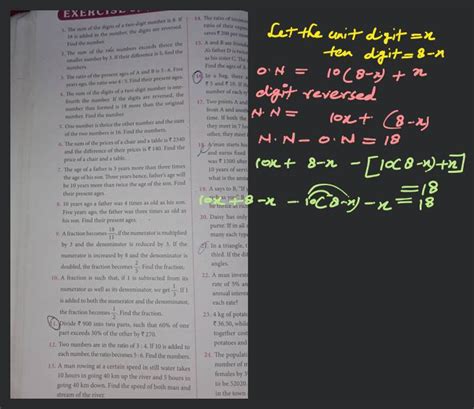 EXERCISE
1. The sum of the digits of a two-digit number is 8. If
18 is added to the number, the digits are reversed.
Find the number.
2. The sum of the two numbers exceeds thrice the
smaller number by 5. If their difference is find the
numbers.
3. The ratio of the present ages of A and B is 5 : 8. Five
years ago, the ratio was 4 : 7. Find their present ages.
4. The sum of the digits of a two-digit number is one-
fourth the number. If the digits are reversed, the
number thus formed is 18 more than the original
number. Find the number.
5. One number is thrice the other number and the sum
of the two numbers is 16. Find the numbers.
6. The sum of the prices of a chair and a table is ₹ 2340
and the difference of their prices is ₹ 140. Find the
price of a chair and a table.
7. The age of a father is 3 years more than three times
the age of his son. Three years hence, father's age will
be 10 years more than twice the age of the son. Find
their present ages.
8. 10 years ago a father was 4 times as old as his son.
Five years ago, the father was three times as old as
his son. Find their present ages.
9. A fraction becomes 18/11 if the numerator is multiplied
by 3 and the denominator is reduced by 3. If the
numerator is increased by 8 and the denominator is
doubled, the fraction becomes 2/5. Find the fraction.
10. A fraction is such that, if 1 is subtracted from its
numerator as well as its denominator, we get 1/3. If 1
is added to both the numerator and the denominator,
the fraction becomes 1/2. Find the fraction.
11. Divide ₹ 900 into two parts, such that 60% of one
part exceeds 30% of the other by ₹ 270.
12. Two numbers are in the ratio of 3 : 4. If 10 is added to
each number, the ratio becomes 5 : 6. Find the numbers.
13. A man rowing at a certain speed in still water takes
10 hours in going 40 km up the river and 5 hours in
going 40 km down. Find the speed of both man and
stream of the river.
14. The ratio of
ratio of their
saves ₹
15. A and B are
As father D is
as his sister C. The
Find the ages of
16. In a bag, there
3 : 5. If
number of each
17. Two points A and
from A and
time. If both
they meet in 7
other, they meet
18. A man starts his
and earns
was ₹ 1500 after
10 years of
what is the annual
19. A says to B, "If
be twice as
20. Daisy has only
purse. If in all
many each type
21. In a triangle, t
third. If the
angles.
22. A man invest
rate of 5% an
annual interest
each rate?
23. 4 kg of potato
₹ 36.50, while
together cost
potatoes and
24. The populati
number of m
females by
to be 52020.
in the town
Let the unit digit = x
ten digit = 8-x
O.N = 10(8-x) + x
digit reversed
N.N = 10x + (8-x)
N.N - O.N = 18
10x + 8-x - [10(8-x)+x]
= 18
10x + 8-x - 10(8-x) - x = 18